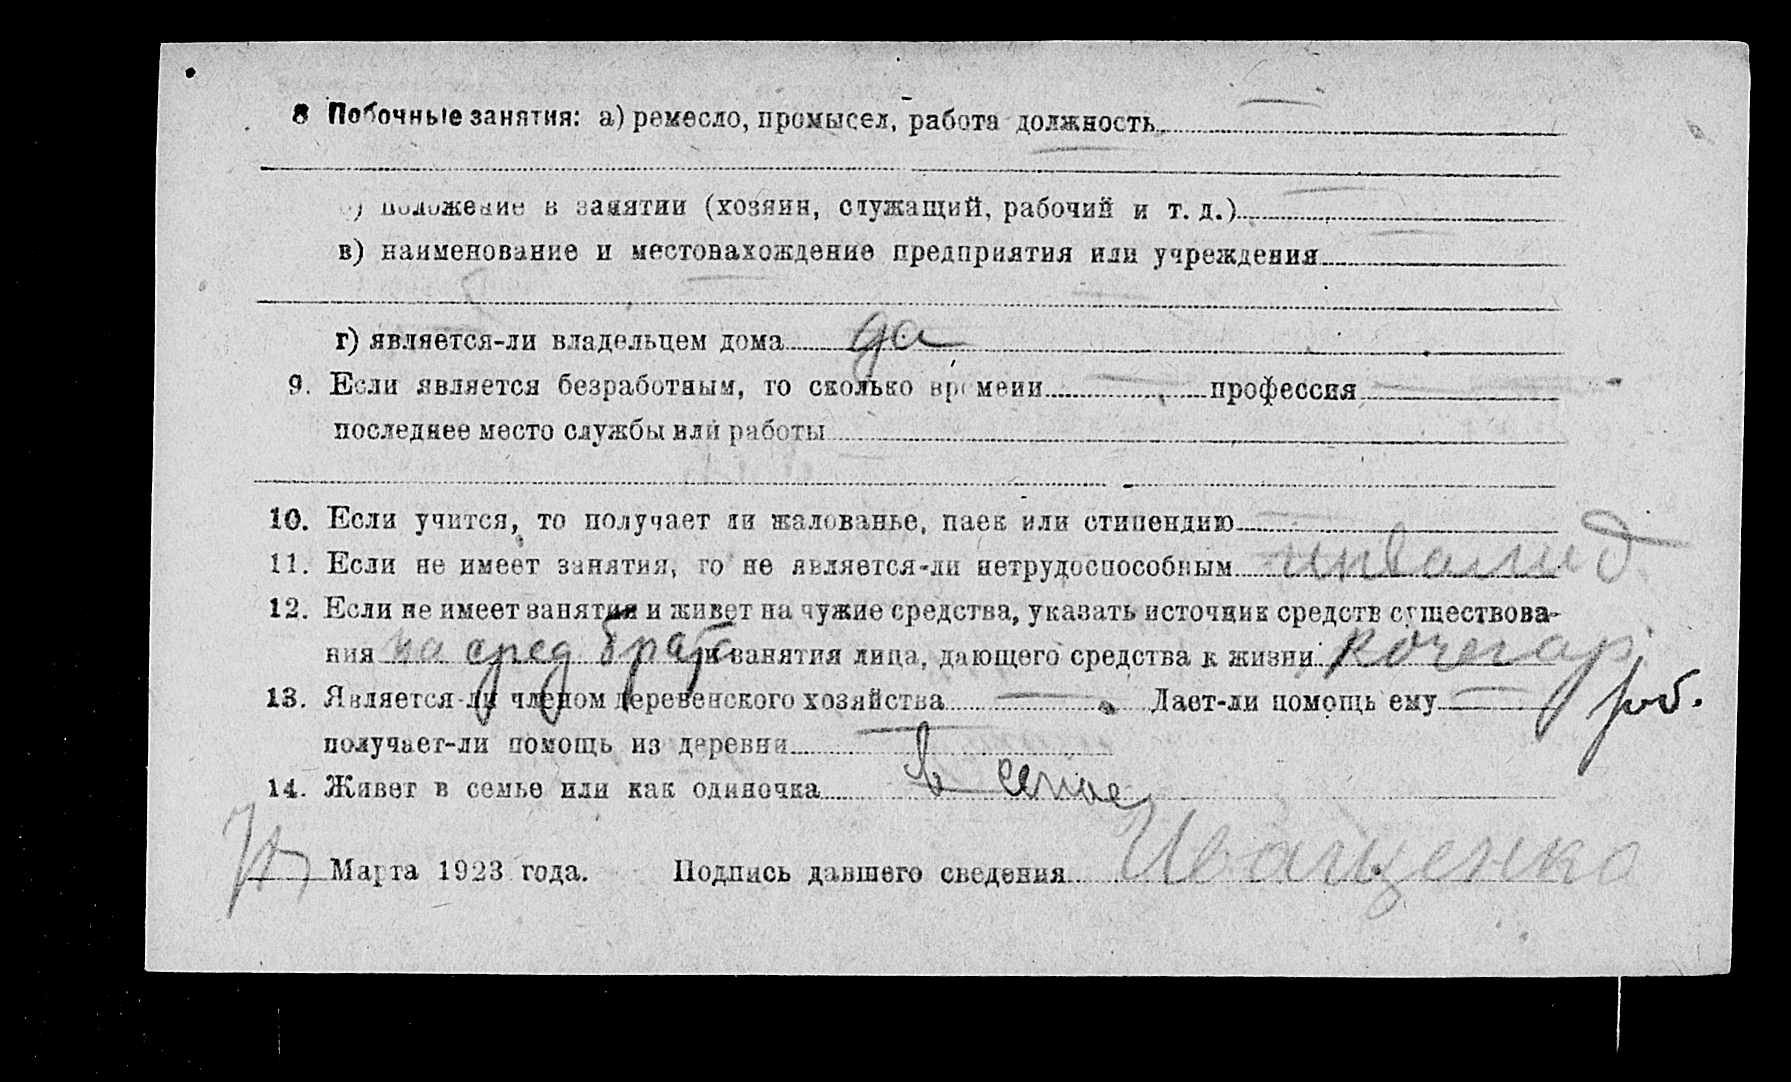 8 Побочные занятия: а) ремесло, промысел, работа должность —
— б) положение в занятии (хозяин, служащий, рабочий и т. д.) —
в) наименование и местонахождение предприятия или учреждения —
— —
г) является-ли владельцем дома да
9. Если является безработным, то сколько времени — профессия —
последнее место службы или работы
10. Если учится, то получает ли жалованье, паек или стипендию —
11. Если не имеет занятия, то не является-ли нетрудоспособным инвалид
12. Если не имеет занятия и живет на чужие средства, указать источник средств существова-
ния на сред брата и занятия лица, дающего средства к жизни кочегар
13. Является-ли членом деревенского хозяйства — Дает-ли помощь ему — раб.
получает-ли помощь из деревни —
14. Живет в семье или как одиночка в семье
Марта 1923 года. Подпись давшего сведения Иващенко